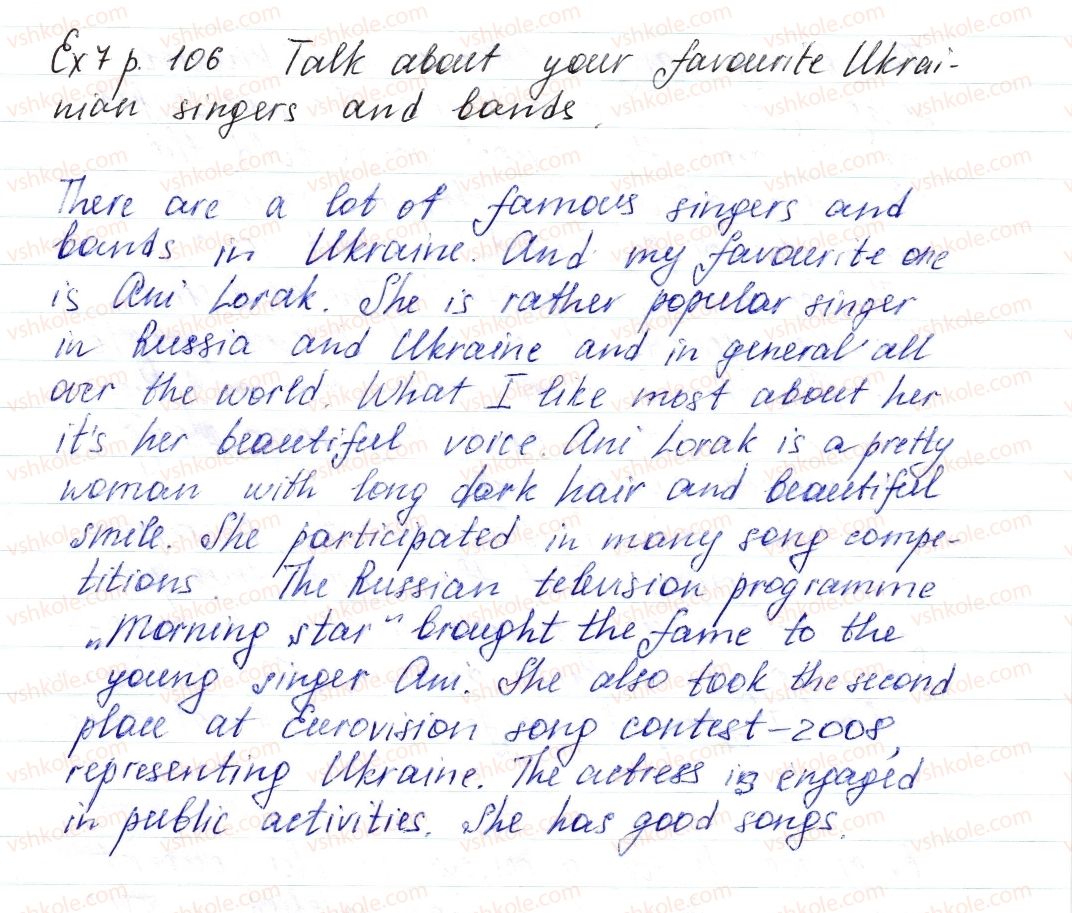 Ex 7 p. 106 Talk about your favourite Ukrai-
nian singers and bands.
There are a lot of famous singers and
bands in Ukraine. And my favourite one
is Ani Lorak. She is rather popular singer
in Russia and Ukraine and in general all
over the world. What I like most about her
it's her beautiful voice. Ani Lorak is a pretty
woman with long dark hair and beautiful
smile. She participated in many song compe-
titions. The Russian television programme
„Morning star" brought the fame to the
young singer Ani. She also took the second
place at Eurovision song contest-2008,
representing Ukraine. The actress is engaged
in public activities. She has good songs.